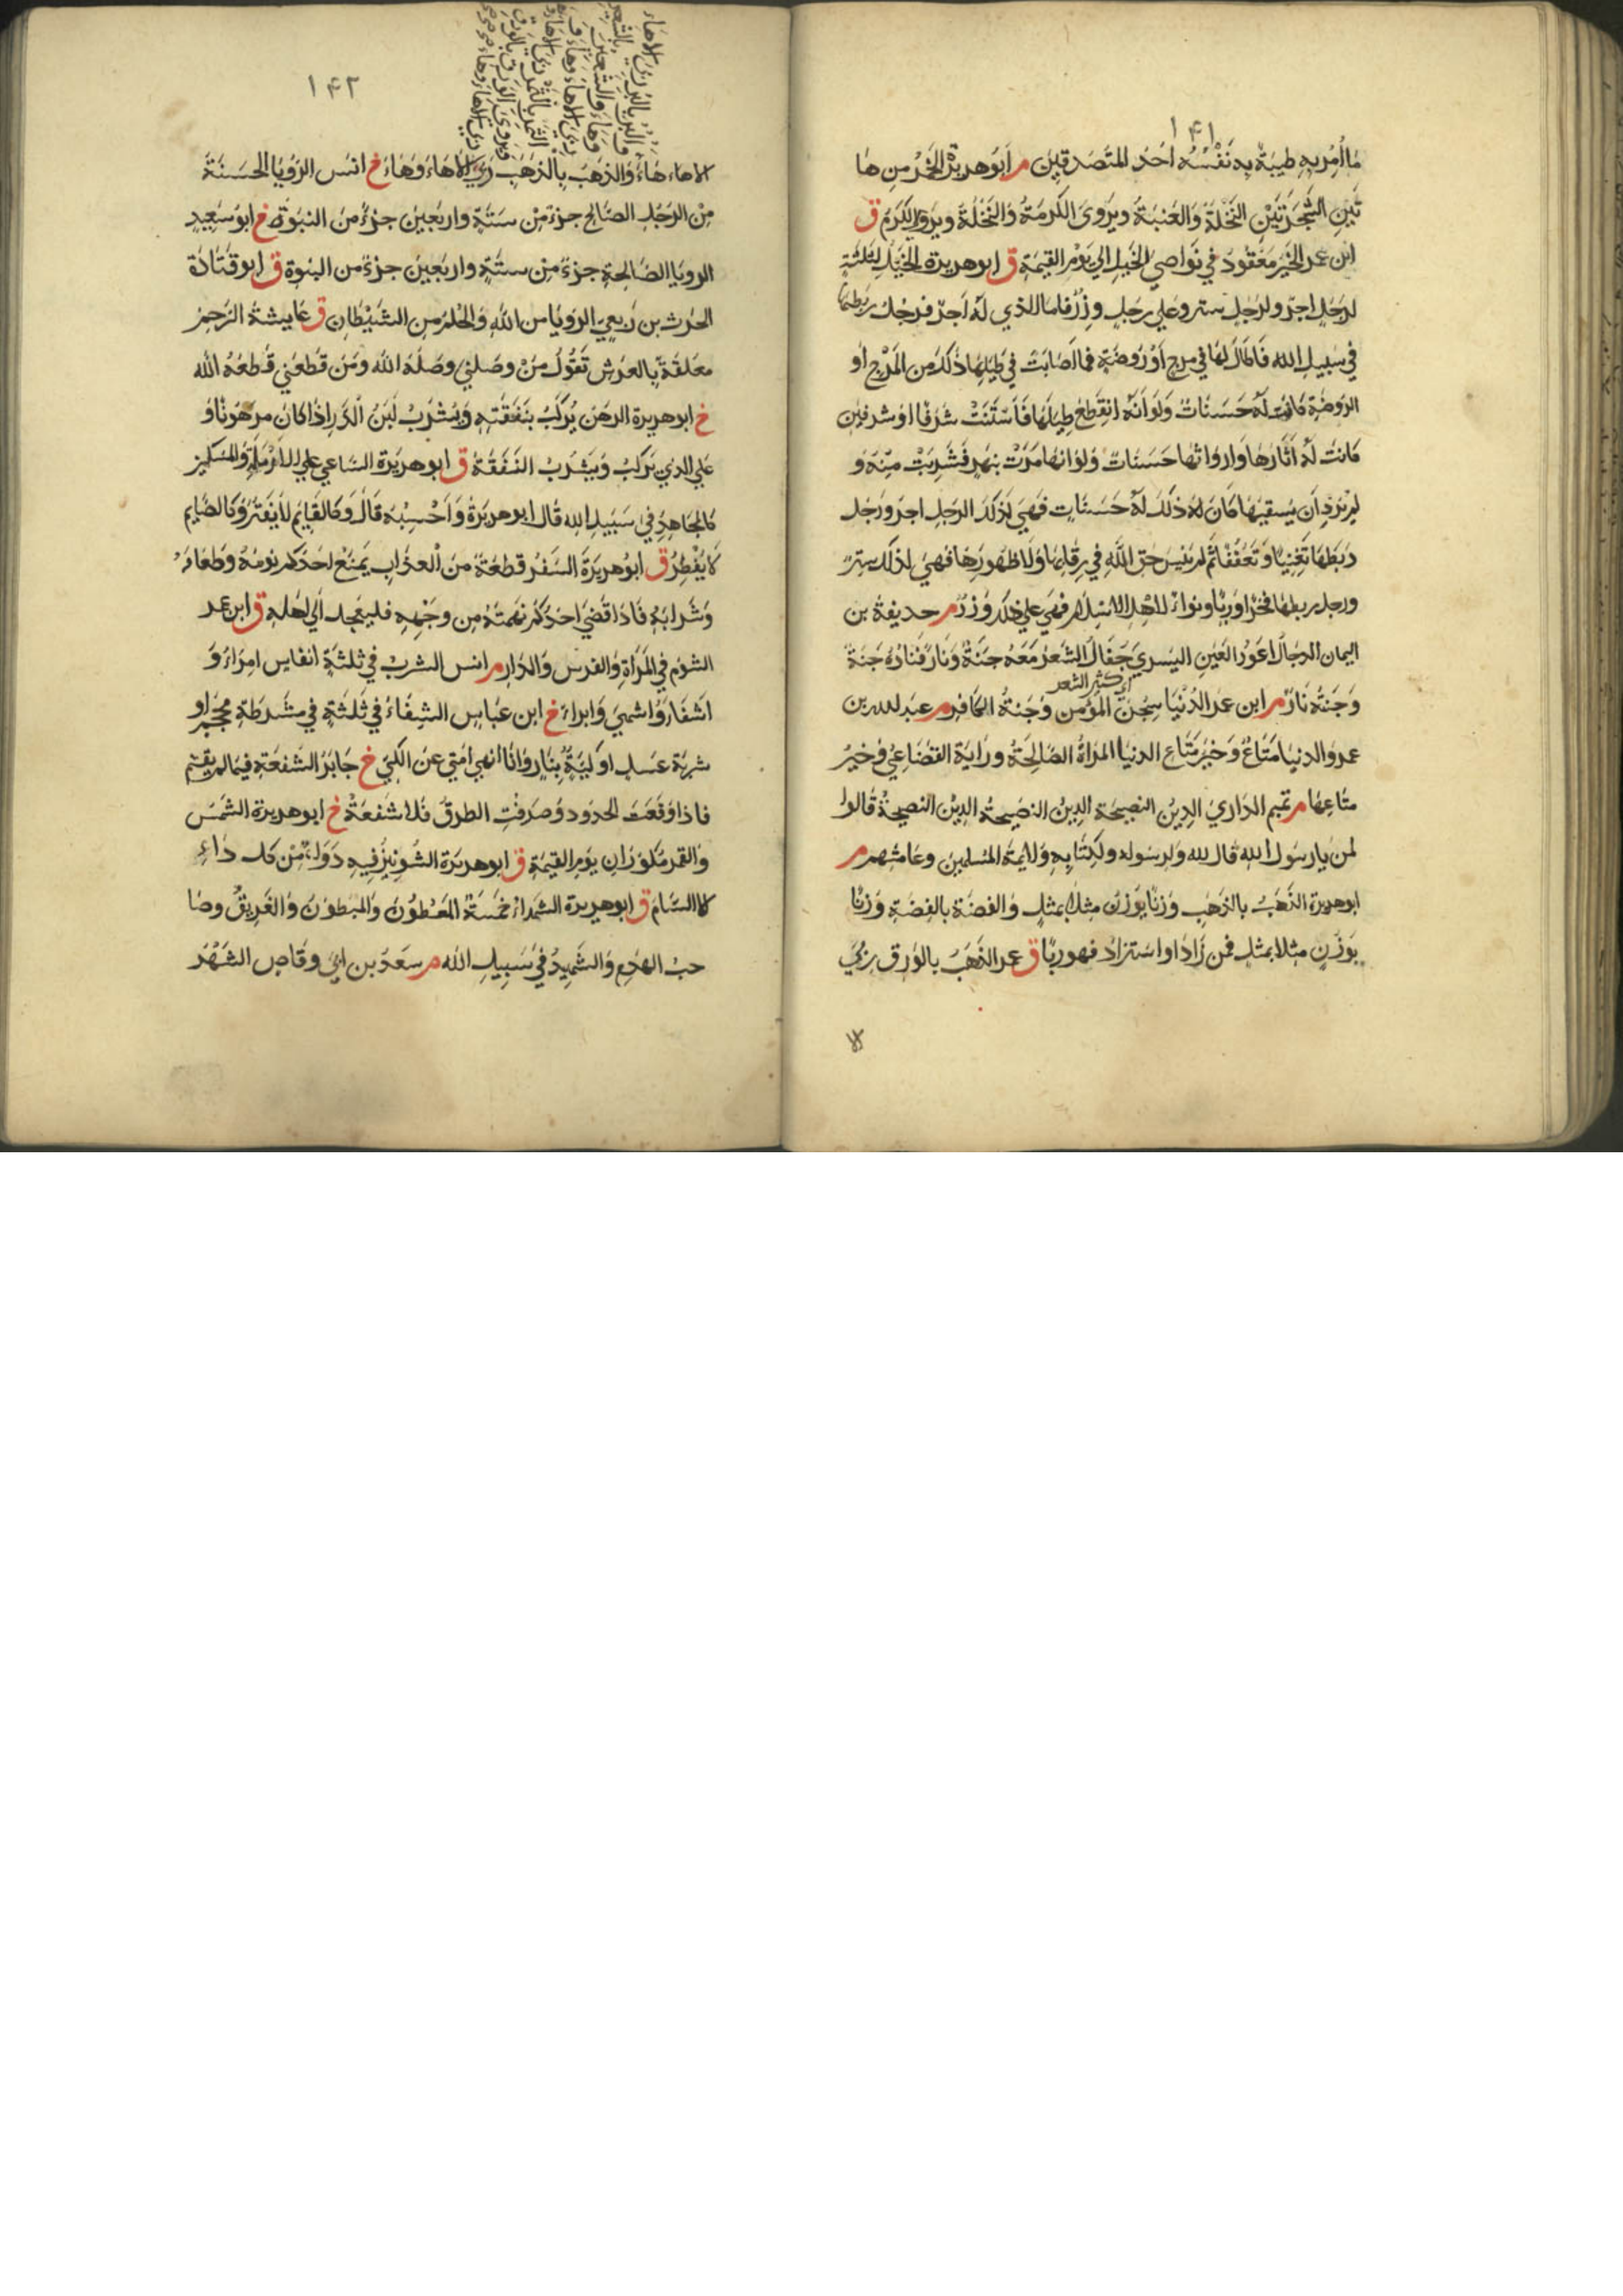 ١٤١
ما أمر به طيبة به نفسه احد المتصدقين م ابو هريرة الخمر من ها
تين الشجرتين النخلة والعنبة ويروى الكرمة والنخلة ويروى الكرم ق
ابن عمر الخير معقود في نواصي الخيل الي يوم القيمة ق ابو هريرة الخيل لثلثة
لرجل اجر ولرجل ستر وعلي رجل وزر فاما الذي له اجر فرجل ربطها
في سبيل الله فاطال لها في مرج او روضة فما اصابت في طيلها ذلك من المرج او
الروضة كانت له حسنات ولو انه انقطع طيلها فاستنت شرفا او شرفين
كانت له اثارها وارواثها حسنات ولو انها مرت بنهر فشربت منه و
لم يرد ان يسقيها كان له ذلك له حسنات فهي لذلك الرجل اجر ورجل
ربطها تغنيا وتعففا ثم لم ينس حق الله في رقابها ولا ظهورها فهي لذلك ستر
ورجل ربطها فخرا ورياء ونواء لاهل الاسلام فهي علي ذلك وزر م حديفة بن
اليمان الدجال اعور العين اليسري جفال الشعر معه جنة ونار فناره جنة
اي كثير الشعر
وجنة نار م ابن عمر الدنيا سجن المؤمن وجنة الكافر م عبد الله بن
عمرو الدنيا متاع وخير متاع الدنيا المراة الصالحة ورواية القضاعي وخير
متاعها م تميم الداري الدين النصيحة الدين النصيحة الدين النصيحة قالوا
لمن يا رسول الله قال لله ولرسوله ولكتابه ولائمة المسلمين وعامتهم م
ابو هريرة الذهب بالذهب وزنا بوزن مثلا بمثل والفضة بالفضة وزنا
بوزن مثلا بمثل فمن زاد او استزاد فهو ربا ق عمر الذهب بالورق ربي
الا
١٤٢
الا هاء هاء والذهب بالذهب ربي الا هاء وهاء خ انس الرؤيا الحسنة
من الرجل الصالح جزء من ستة واربعين جزء من النبوة خ ابو سعيد
الرويا الصالحة جزء من ستة واربعين جزء من النبوة ق ابو قتادة
الحرث بن ربعي الرويا من الله والحلم من الشيطان ق عايشة الرحم
معلقة بالعرش تقول من وصلني وصله الله ومن قطعني قطعه الله
خ ابو هريرة الرهن يركب بنفقته ويشرب لبن الدر اذا كان مرهونا و
علي الذي يركب ويشرب النفقة ق ابو هريرة الساعي علي الارملة والمسكين
كالمجاهد في سبيل الله قال ابو هريرة واحسبه قال وكالقايم لا يفتر وكالصايم
لا يفطر ق ابو هريرة السفر قطعة من العذاب يمنع احدكم نومه وطعامه
وشرابه فاذا قضي احدكم نهمته من وجهه فليعجل الي اهله ق ابن عمر
الشوم في المراة والفرس والدار م انس الشرب في ثلثة انفاس امراء و
اشفا واشهي وابراء خ ابن عباس الشفاء في ثلثة في شرطة محجم او
شربة عسل او كية بنار وانا انهي امتي عن الكي خ جابر الشفعة فيما لم يقسم
فاذا وقعت الحدود وصرفت الطرق فلا شفعة خ ابو هريرة الشمس
والقمر مكوران يوم القيمة ق ابو هريرة الشونيز فيه دواء من كل داء
الا السام ق ابو هريرة الشهداء خمسة المعطون والمبطون والغريق وصا
حب الهدم والشهيد في سبيل الله م سعد بن ابي وقاص الشهر